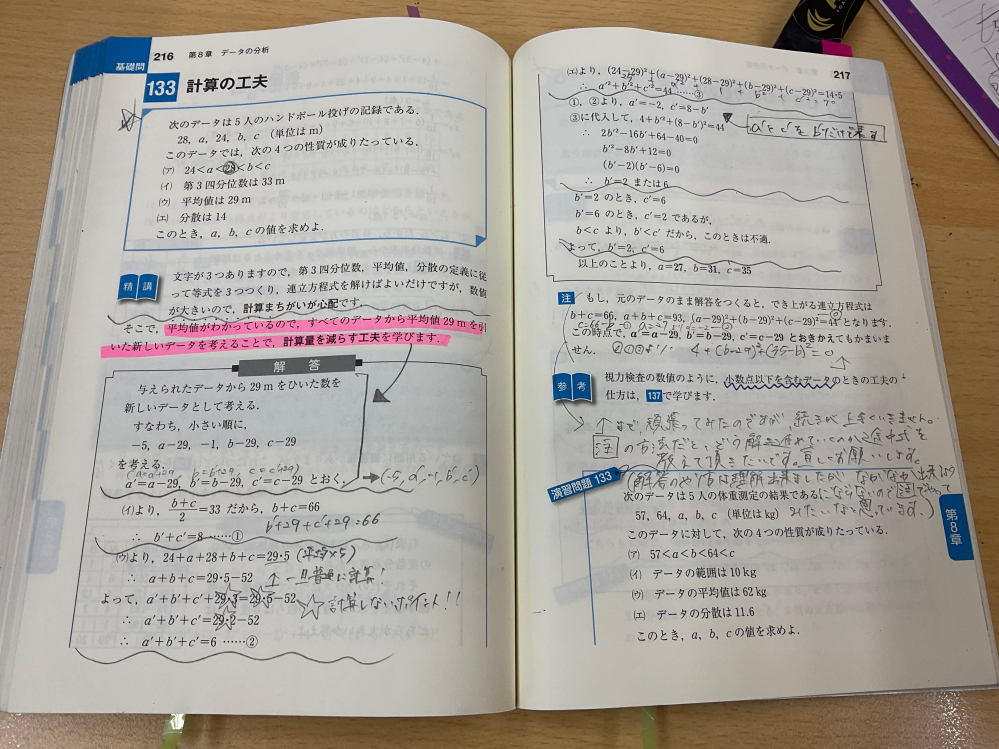 基礎問
216 第8章 データの分析
133 計算の工夫
次のデータは5人のハンドボール投げの記録である.
28, a, 24, b, c (単位はm)
このデータでは, 次の4つの性質が成りたっている.
(ア) 24<a<28<b<c
(イ) 第3四分位数は33 m
(ウ) 平均値は29 m
(エ) 分散は14
このとき, a, b, c の値を求めよ.
精講
文字が3つありますので, 第3四分位数, 平均値, 分散の定義に従
って等式を3つつくり, 連立方程式を解けばよいだけですが, 数値
が大きいので, 計算まちがいが心配です.
そこで, 平均値がわかっているので, すべてのデータから平均値29 mを引
いた新しいデータを考えることで, 計算量を減らす工夫を学びます.
解答
与えられたデータから29 mをひいた数を
新しいデータとして考える.
すなわち, 小さい順に,
-5, a-29, -1, b-29, c-29
を考える.
(a=a'+29 b=b'+29, c=c'+29)
a'=a-29, b'=b-29, c'=c-29 とおく. →(-5, a', -1, b', c')
(イ)より, (b+c)/2=33 だから, b+c=66
b'+29+c'+29=66
∴ b'+c'=8 ……①
(ウ)より, 24+a+28+b+c=29・5 (平均×5)
∴ a+b+c=29・5-52 ↑一旦普通に計算!
よって, a'+b'+c'+29・3=29・5-52 ☆計算しないポイント!!
∴ a'+b'+c'=29・2-52
∴ a'+b'+c'=6 ……②
217
(エ)より, (24-29)²+(a-29)²+(28-29)²+(b-29)²+(c-29)²=14・5
∴ a'²+b'²+c'²=44 ……③
①, ②より, a'=-2, c'=8-b'
③に代入して, 4+b'²+(8-b')²=44
a'とc'をb'だけで表す
∴ 2b'²-16b'+64-40=0
b'²-8b'+12=0
(b'-2)(b'-6)=0
∴ b'=2 または 6
b'=2 のとき, c'=6
b'=6 のとき, c'=2 であるが,
b<c より, b'<c' だから, このときは不適.
よって, b'=2, c'=6
以上のことより, a=27, b=31, c=35
注 もし, 元のデータのまま解答をつくると, でき上がる連立方程式は
b+c=66, a+b+c=93, (a-29)²+(b-29)²+(c-29)²=44 となります.
この時点で, a'=a-29, b'=b-29, c'=c-29 とおきかえてもかまいま
せん.
4+(b-29)²+(35-b)²=0
参考
視力検査の数値のように, 小数点以下を含むデータのときの工夫の
仕方は, 137で学びます.
↑まで, 頑張ってみたのですが, 続きが上手くいきません。
注の方法だと、どう解き進めていくのか途中式を
教えて頂きたいです。宜しくお願いします。
(解答のやり方は理解出来ましたが、なかなか出来るよう
にならないので注でやって
みたいなと思っています。)
演習問題 133
次のデータは5人の体重測定の結果である.
57, 64, a, b, c (単位はkg)
このデータに対して, 次の4つの性質が成りたっている.
(ア) 57<a<b<64<c
(イ) データの範囲は10 kg
(ウ) データの平均値は62 kg
(エ) データの分散は11.6
このとき, a, b, c の値を求めよ.
第8章